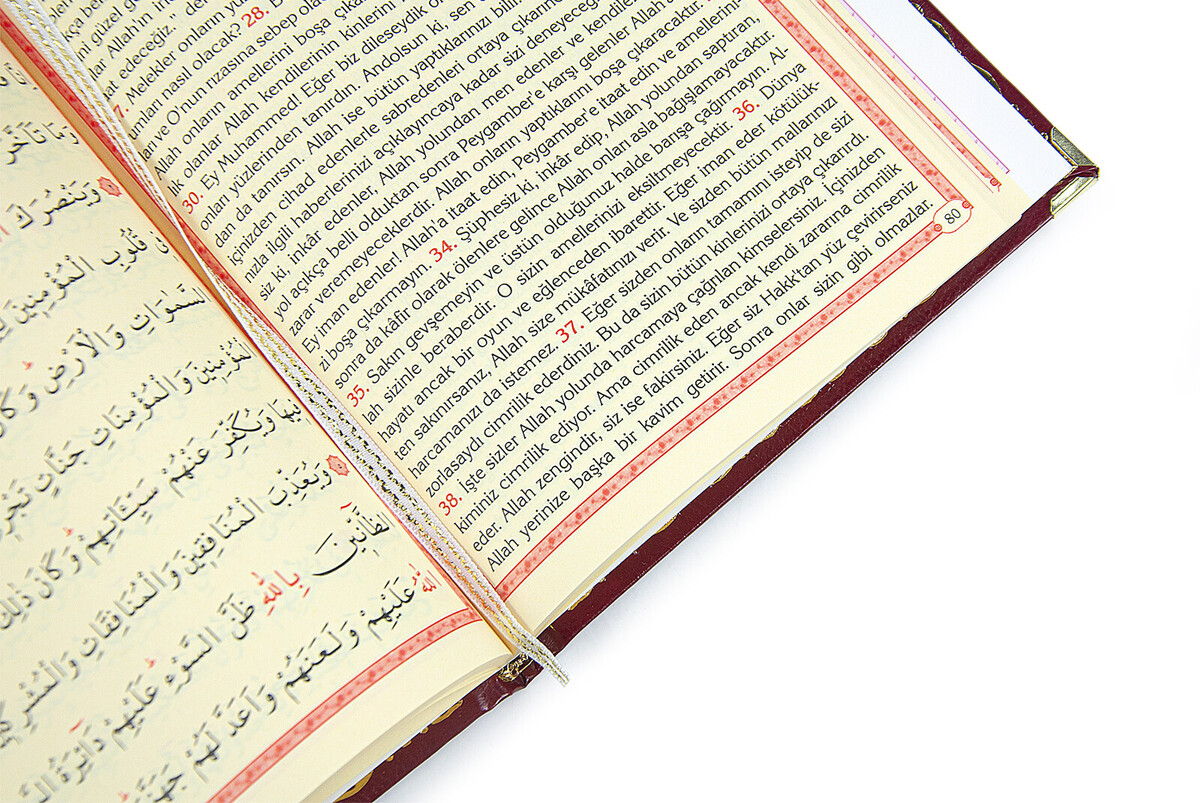 28.
edeceğiz.,,
Melekler onların
umları nasıl olacak?
ve O'nun rızasına sebep
Allah onların amellerini boşa
lık olanlar Allah kendilerinin kinlerini
30. Ey Muhammed! Eğer biz dileseydik
onları yüzlerinden tanırdın. Andolsun ki, sen
dan da tanırsın. Allah ise bütün yaptıklarınızı
içinizden cihad edenlerle sabredenleri ortaya çıkarıncaya
nızla ilgili haberlerinizi açıklayıncaya kadar sizi deneyeceğiz.
siz ki, inkâr edenler, Allah yolundan men edenler ve kendilerine
yol açıkça belli olduktan sonra Peygamber'e karşı gelenler Allah'a
zarar veremeyeceklerdir. Allah onların yaptıklarını boşa çıkaracaktır.
Ey iman edenler! Allah'a itaat edin, Peygamber'e itaat edin ve amellerini-
zi boşa çıkarmayın. 34. Şüphesiz ki, inkâr edip, Allah yolundan saptıran,
sonra da kâfir olarak ölenlere gelince Allah onları asla bağışlamayacaktır.
35. Sakın gevşemeyin ve üstün olduğunuz halde barışa çağırmayın. Al-
lah sizinle beraberdir. O sizin amellerinizi eksiltmeyecektir. 36. Dünya
hayatı ancak bir oyun ve eğlenceden ibarettir. Eğer iman eder kötülük-
ten sakınırsanız, Allah size mükâfatınızı verir. Ve sizden bütün mallarınızı
harcamanızı da istemez. 37. Eğer sizden onların tamamını isteyip de sizi
zorlasaydı cimrilik ederdiniz. Bu da sizin bütün kinlerinizi ortaya çıkarırdı.
38. İşte sizler Allah yolunda harcamaya çağrılan kimselersiniz. İçinizden
kiminiz cimrilik ediyor. Ama cimrilik eden ancak kendi zararına cimrilik
eder. Allah zengindir, siz ise fakirsiniz. Eğer siz Hakk'tan yüz çevirirseniz
Allah yerinize başka bir kavim getirir. Sonra onlar sizin gibi olmazlar.
80
وَمَا تَاَخَّرَ
وَيَنْصُرَكَ
قُلُوبِ الْمُؤْمِنِينَ
السَّمٰوَاتِ وَالْاَرْضِ وَكَانَ
الْمُؤْمِنِينَ وَالْمُؤْمِنَاتِ جَنَّاتٍ تَجْرِي
فِيهَا وَيُكَفِّرَ عَنْهُمْ سَيِّئَاتِهِمْ وَكَانَ ذٰلِكَ
وَيُعَذِّبَ الْمُنَافِقِينَ وَالْمُنَافِقَاتِ وَالْمُشْرِكِينَ
الظَّانِّينَ بِاللّٰهِ ظَنَّ السَّوْءِ عَلَيْهِمْ دَائِرَةُ
اللّٰهُ عَلَيْهِمْ وَلَعَنَهُمْ وَاَعَدَّ لَهُمْ جَهَنَّمَ